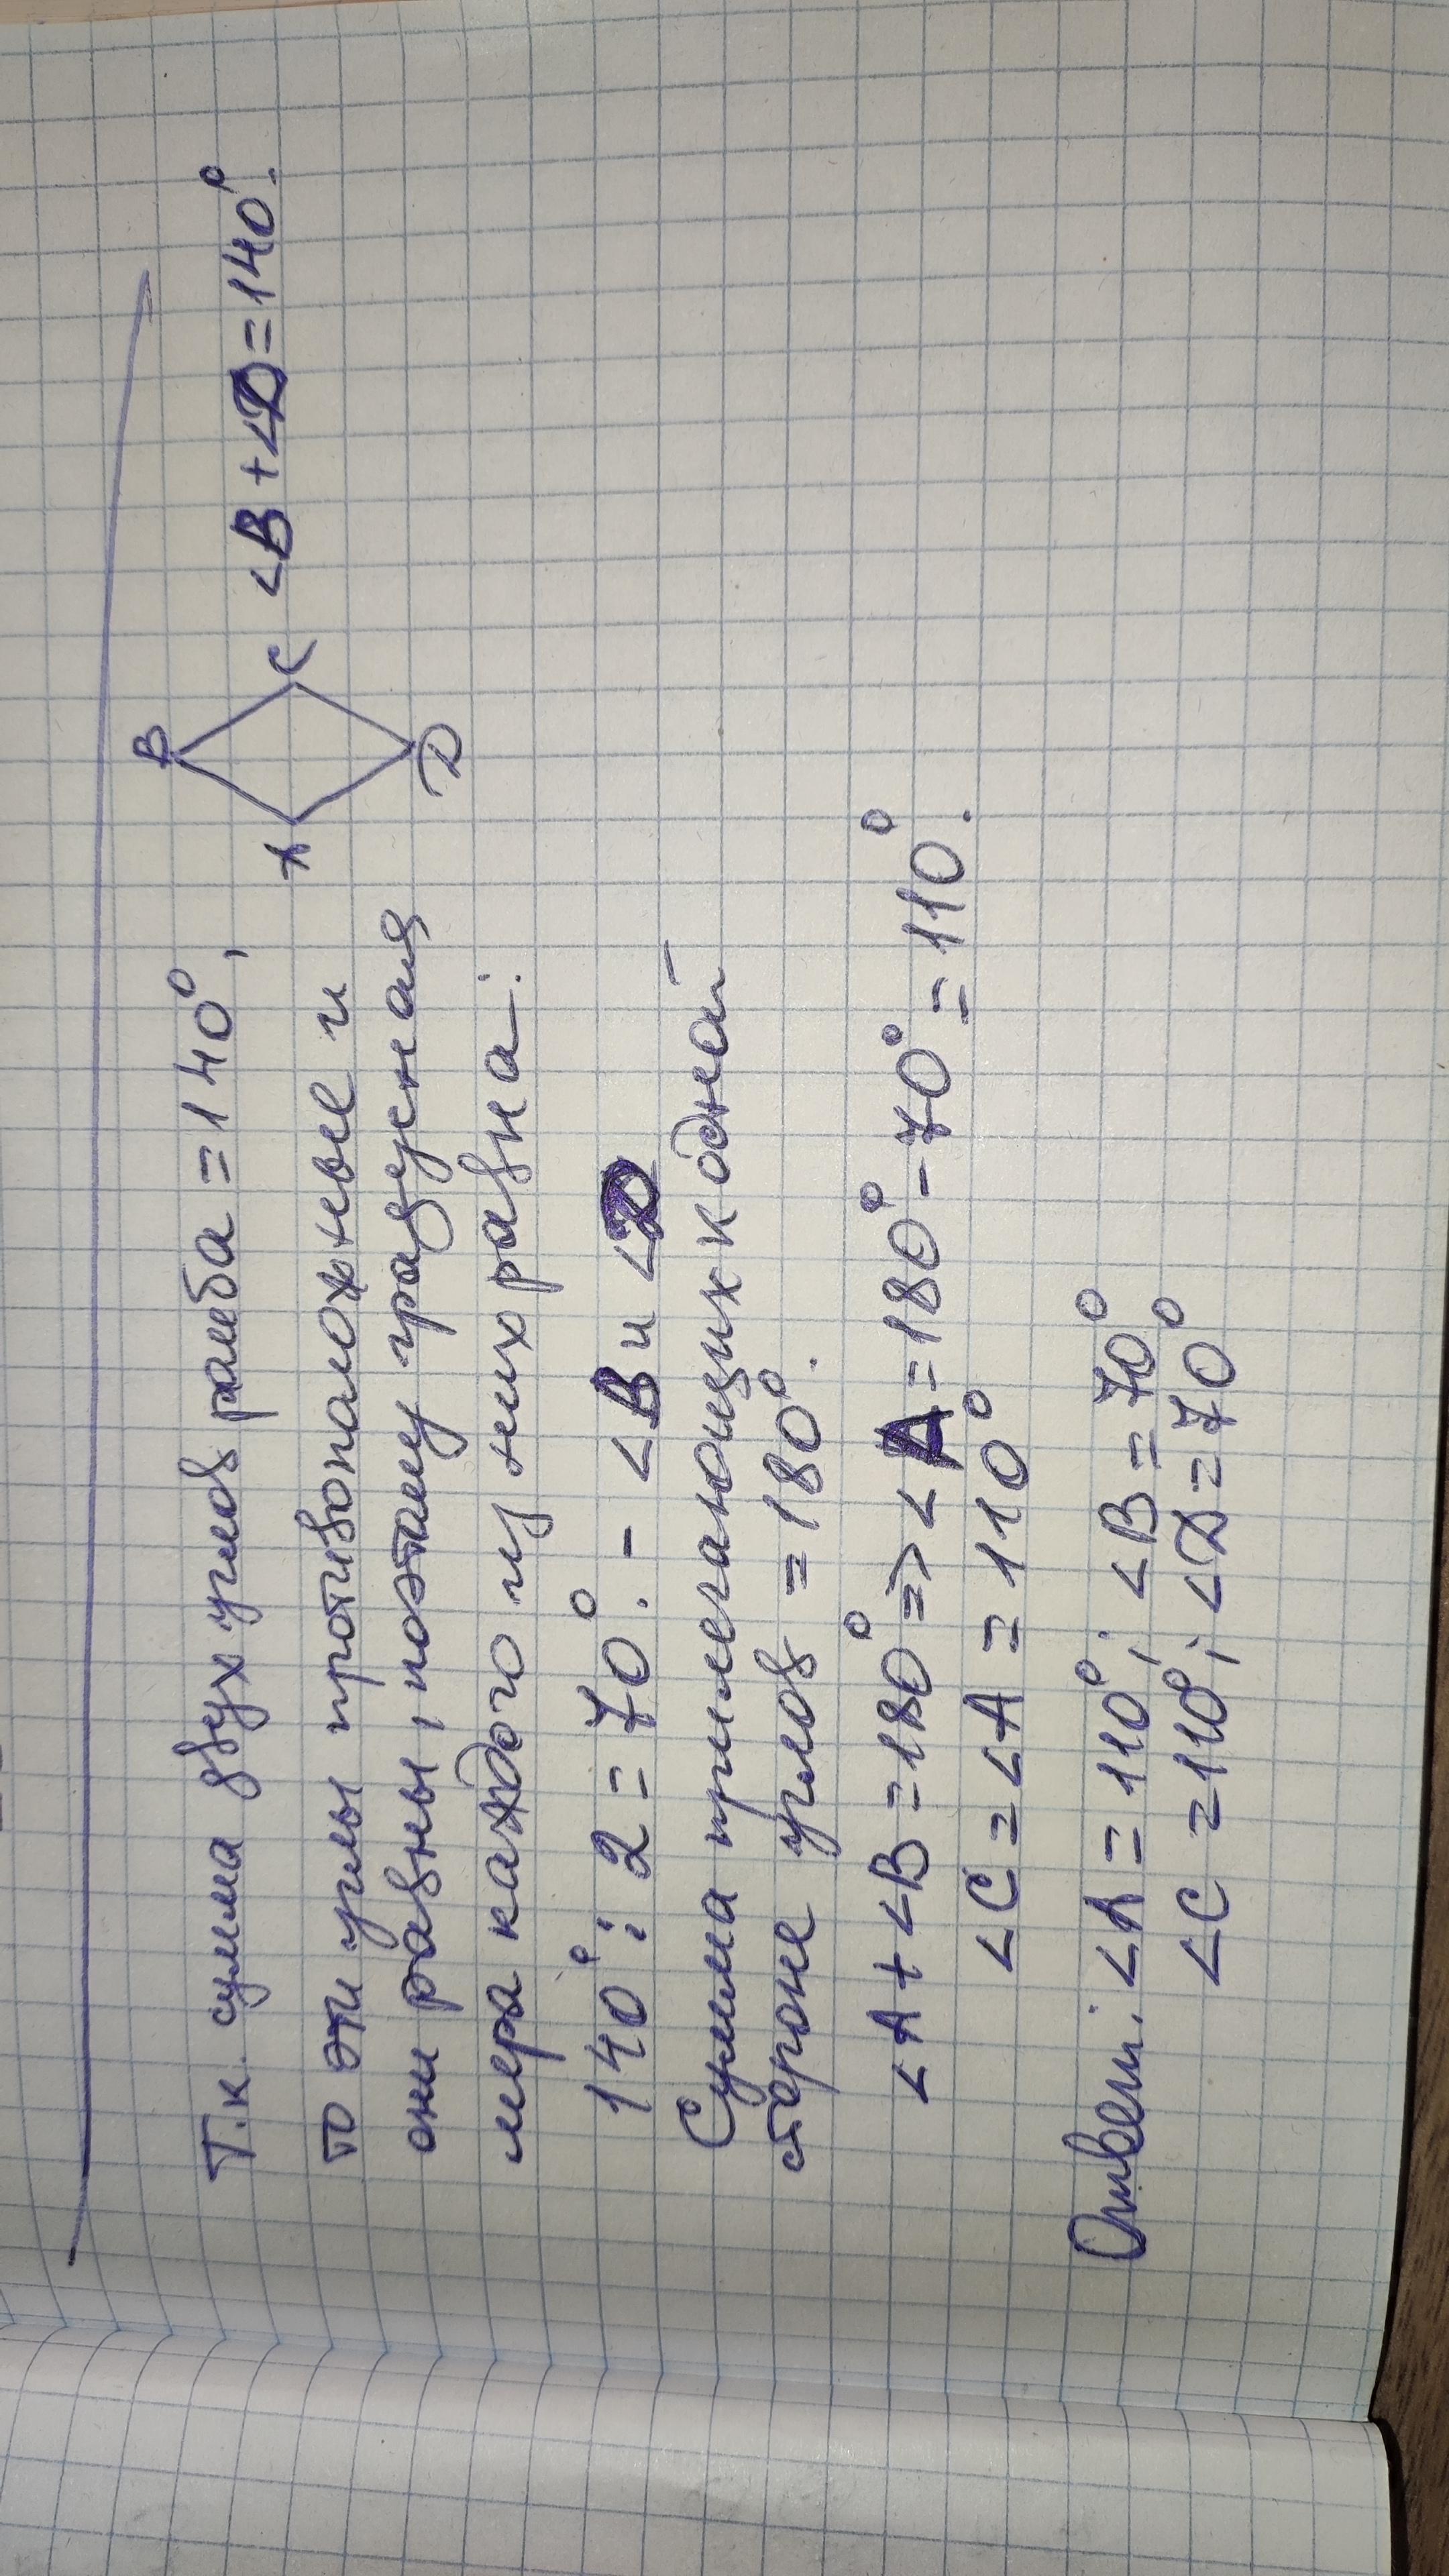 Т.к. сумма двух углов ромба = 140°,
B
A
C
D
∠B + ∠D = 140°.
то эти углы противоположные и
они равны, поэтому градусная
мера каждого из них равна:
140° : 2 = 70°. - ∠B и ∠D
Сумма прилегающих к одной
стороне углов = 180°.
∠A + ∠B = 180° => ∠A = 180° - 70° = 110°.
∠C = ∠A = 110°
Ответ: ∠A = 110°; ∠B = 70°
∠C = 110°; ∠D = 70°